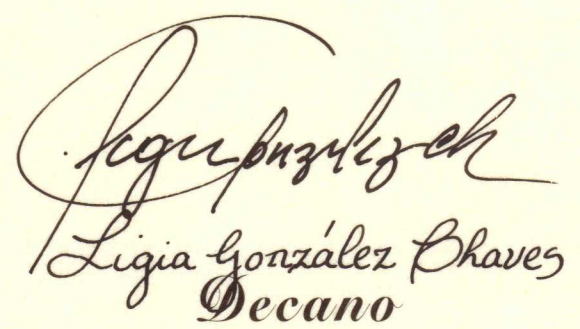 Ligia González Chaves
Decano